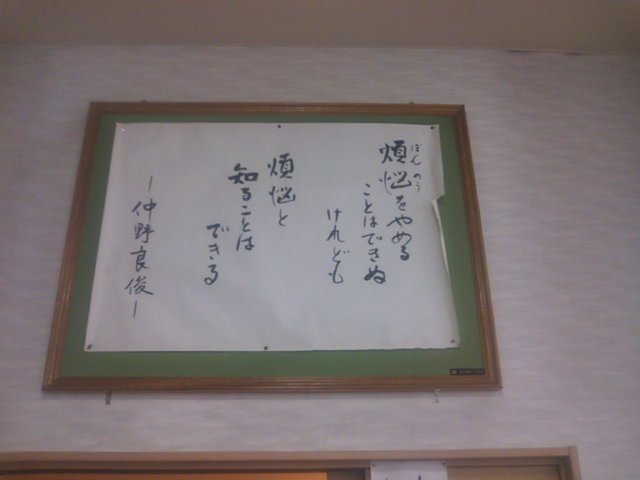 煩悩をやめる
ぼんのう
ことはできぬ
けれども
煩悩と
知ることは
できる
ー仲野良俊ー